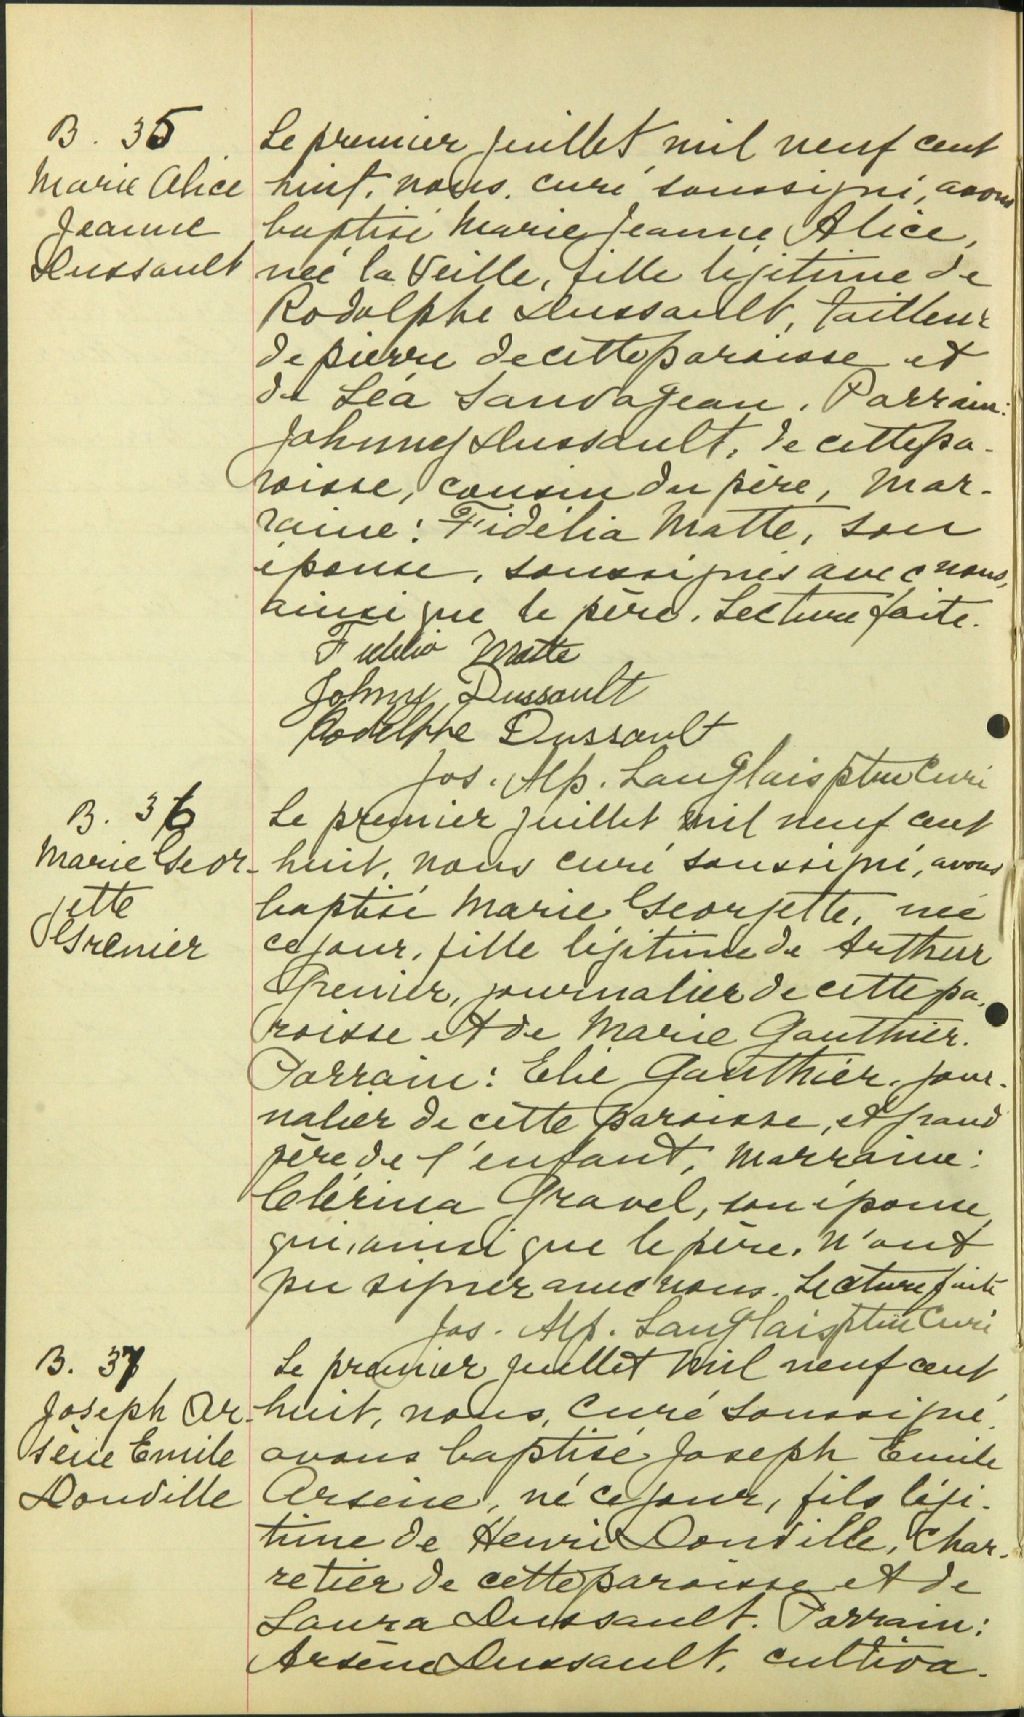 B. 35
Marie Alice
Jeanne
Dussault
Le premier juillet mil neuf cent
huit, nous, curé soussigné, avons
baptisé Marie Jeanne Alice,
née la veille, fille légitime de
Rodolphe Dussault, tailleur
de pierre de cette paroisse et
de Léa Sauvageau. Parrain:
Johnny Dussault, de cette pa-
roisse, cousin du père, Mar-
raine: Fidélia Matte, son
épouse, soussignés avec nous,
ainsi que le père. Lecture faite.
Fidélia Matte
Johny Dussault
Rodolphe Dussault
Jos. Alp. Langlais ptre Curé
B. 36
Marie Geor-
gette
Grenier
Le premier juillet mil neuf cent
huit, nous curé soussigné, avons
baptisé Marie Georgette, née
ce jour, fille légitime de Arthur
Grenier, journalier de cette pa-
roisse et de Marie Gauthier.
Parrain: Elie Gauthier, jour-
nalier de cette paroisse, et grand
père de l'enfant, marraine:
Clérina Gravel, son épouse,
qui, ainsi que le père, n'ont
pu signer avec nous. Lecture faite
Jos. Alp. Langlais ptre Curé
B. 37
Joseph Ar-
sène Emile
Douville
Le premier juillet mil neuf cent
huit, nous, Curé soussigné,
avons baptisé Joseph Emile
Arsène, né ce jour, fils légi-
time de Henri Douville, Char-
retier de cette paroisse et de
Laura Dussault. Parrain:
Arsène Dussault, cultiva-